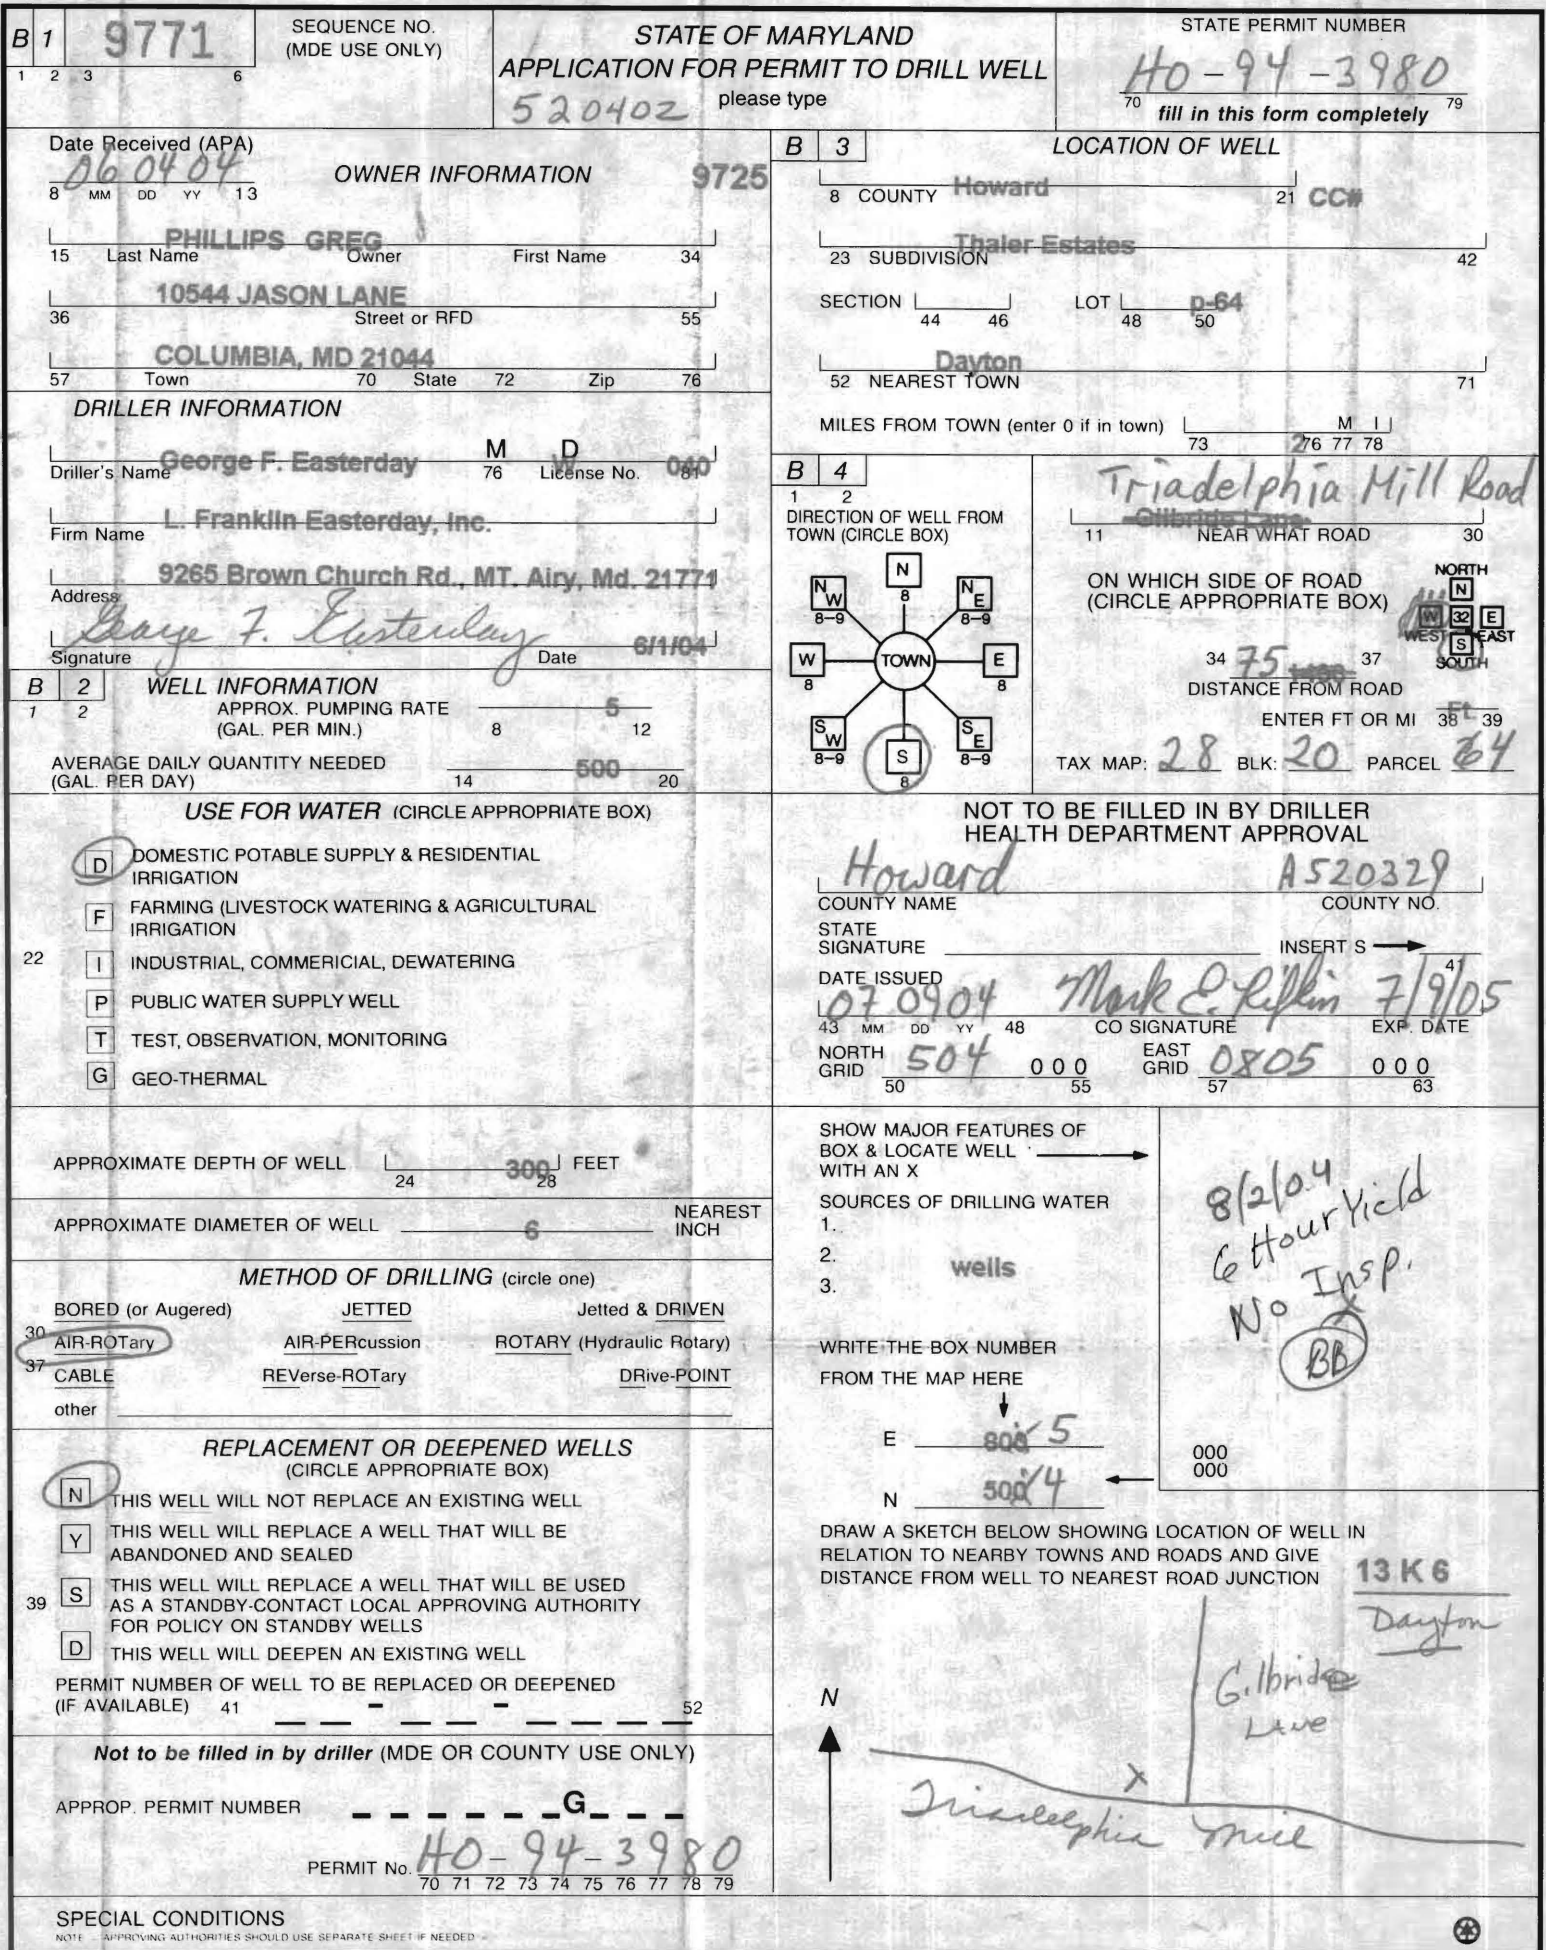 B 1 9771
1 2 3 6
SEQUENCE NO.
(MDE USE ONLY)
STATE OF MARYLAND
APPLICATION FOR PERMIT TO DRILL WELL
520402 please type
STATE PERMIT NUMBER
HO-94-3980
70 79
fill in this form completely
Date Received (APA)
06 04 04
8 MM DD YY 13
OWNER INFORMATION
9725
PHILLIPS GREG
15 Last Name Owner First Name 34
10544 JASON LANE
36 Street or RFD 55
COLUMBIA, MD 21044
57 Town 70 State 72 Zip 76
DRILLER INFORMATION
George F. Easterday M W D 040
Driller's Name 76 License No. 81
L. Franklin Easterday, Inc.
Firm Name
9265 Brown Church Rd., MT. Airy, Md. 21771
Address
George F. Easterday 6/1/04
Signature Date
B 2
1 2
WELL INFORMATION
APPROX. PUMPING RATE
(GAL. PER MIN.) 8 5 12
AVERAGE DAILY QUANTITY NEEDED
(GAL. PER DAY) 14 500 20
USE FOR WATER (CIRCLE APPROPRIATE BOX)
22
D DOMESTIC POTABLE SUPPLY & RESIDENTIAL
IRRIGATION
F FARMING (LIVESTOCK WATERING & AGRICULTURAL
IRRIGATION
I INDUSTRIAL, COMMERICIAL, DEWATERING
P PUBLIC WATER SUPPLY WELL
T TEST, OBSERVATION, MONITORING
G GEO-THERMAL
APPROXIMATE DEPTH OF WELL 300 FEET
24 28
APPROXIMATE DIAMETER OF WELL 6 NEAREST
INCH
METHOD OF DRILLING (circle one)
BORED (or Augered) JETTED Jetted & DRIVEN
30 AIR-ROTary AIR-PERcussion ROTARY (Hydraulic Rotary)
37 CABLE REVerse-ROTary DRive-POINT
other
REPLACEMENT OR DEEPENED WELLS
(CIRCLE APPROPRIATE BOX)
N THIS WELL WILL NOT REPLACE AN EXISTING WELL
Y THIS WELL WILL REPLACE A WELL THAT WILL BE
ABANDONED AND SEALED
39 S THIS WELL WILL REPLACE A WELL THAT WILL BE USED
AS A STANDBY-CONTACT LOCAL APPROVING AUTHORITY
FOR POLICY ON STANDBY WELLS
D THIS WELL WILL DEEPEN AN EXISTING WELL
PERMIT NUMBER OF WELL TO BE REPLACED OR DEEPENED
(IF AVAILABLE) 41 - - 52
Not to be filled in by driller (MDE OR COUNTY USE ONLY)
APPROP. PERMIT NUMBER G
PERMIT No. HO-94-3980
70 71 72 73 74 75 76 77 78 79
SPECIAL CONDITIONS
NOTE - APPROVING AUTHORITIES SHOULD USE SEPARATE SHEET IF NEEDED -
B 3
LOCATION OF WELL
8 COUNTY Howard 21 CC#
Thaler Estates
23 SUBDIVISION 42
SECTION LOT p-64
44 46 48 50
Dayton
52 NEAREST TOWN 71
MILES FROM TOWN (enter 0 if in town) M I
73 2 76 77 78
B 4
1 2
DIRECTION OF WELL FROM
TOWN (CIRCLE BOX)
N
8
NW
8-9
NE
8-9
W
8
TOWN
E
8
SW
8-9
S
8
SE
8-9
Triadelphia Mill Road
Gilbride Lane
11 NEAR WHAT ROAD 30
ON WHICH SIDE OF ROAD
(CIRCLE APPROPRIATE BOX)
NORTH
N
W 32 E
WEST EAST
S
SOUTH
34 75 1400 37
DISTANCE FROM ROAD
ENTER FT OR MI 38 Ft 39
TAX MAP: 28 BLK: 20 PARCEL 64
NOT TO BE FILLED IN BY DRILLER
HEALTH DEPARTMENT APPROVAL
Howard A520329
COUNTY NAME COUNTY NO.
STATE
SIGNATURE INSERT S
41
DATE ISSUED
07 09 04 Mark E. Rifkin 7/9/05
43 MM DD YY 48 CO SIGNATURE EXP. DATE
NORTH
GRID 504 000
50 55
EAST
GRID 0805 000
57 63
SHOW MAJOR FEATURES OF
BOX & LOCATE WELL
WITH AN X
SOURCES OF DRILLING WATER
1.
2. wells
3.
WRITE THE BOX NUMBER
FROM THE MAP HERE
E 800 5
N 500 4
8/2/04
6 Hour Yield
No Insp.
X
BB
000
000
DRAW A SKETCH BELOW SHOWING LOCATION OF WELL IN
RELATION TO NEARBY TOWNS AND ROADS AND GIVE
DISTANCE FROM WELL TO NEAREST ROAD JUNCTION
13 K 6
Dayton
Gilbride
Lane
N
X
Triadelphia Mill